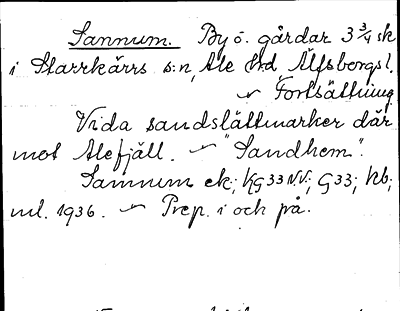 Sannum. By o. gårdar 3 3/4 sk
i Starrkärrs s:n, Ale hd Älfsborgs l.
~ Fortsättning
Vida sandslättmarker där
mot Alefjäll. ~ "Sandhem".
Sannum ek; KG 33 NV; G 33; hb;
ml. 1936. ~ Prep. i och på.